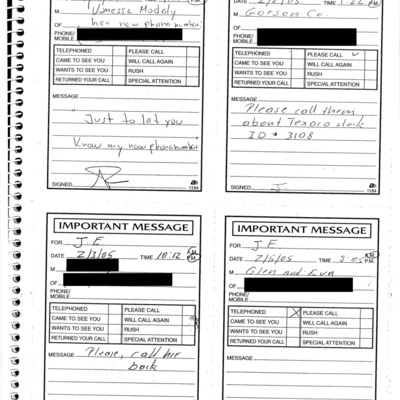 M Vanessa Madoly
her new phone number
OF
PHONE/
MOBILE
TELEPHONED PLEASE CALL
CAME TO SEE YOU WILL CALL AGAIN
WANTS TO SEE YOU RUSH
RETURNED YOUR CALL SPECIAL ATTENTION
MESSAGE
"Just to let you
Know my new phone number"
SIGNED
1184
DATE TIME P.M.
M Gerson Co.
OF
PHONE/
MOBILE
TELEPHONED PLEASE CALL ✓
CAME TO SEE YOU WILL CALL AGAIN
WANTS TO SEE YOU RUSH
RETURNED YOUR CALL SPECIAL ATTENTION
MESSAGE
Please call them
about Texoco stock
ID # 3108
SIGNED J
1184
IMPORTANT MESSAGE
FOR J.E
DATE 2/3/05 TIME 10:12 A.M. P.M.
M
OF
PHONE/
MOBILE
TELEPHONED PLEASE CALL
CAME TO SEE YOU WILL CALL AGAIN
WANTS TO SEE YOU RUSH
RETURNED YOUR CALL SPECIAL ATTENTION
MESSAGE Please, call her
back
IMPORTANT MESSAGE
FOR J.E
DATE 2/5/05 TIME A.M. P.M.
M Glen and Eva
OF
PHONE/
MOBILE
TELEPHONED X PLEASE CALL
CAME TO SEE YOU WILL CALL AGAIN
WANTS TO SEE YOU RUSH
RETURNED YOUR CALL SPECIAL ATTENTION
MESSAGE